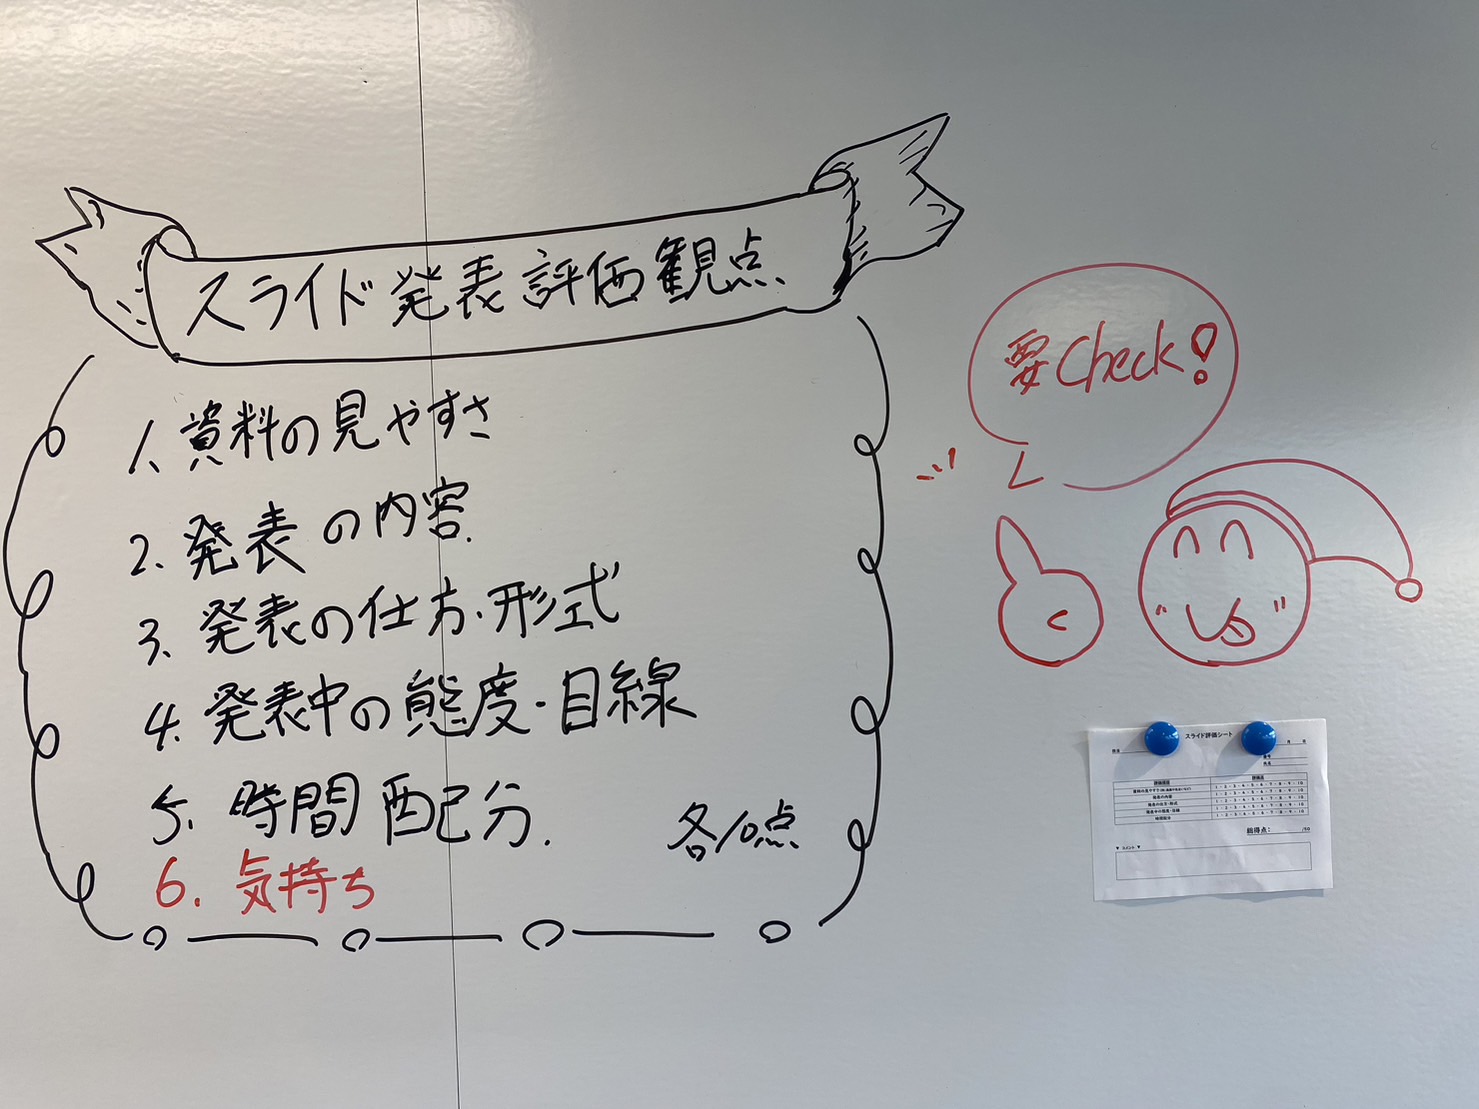 スライド発表評価観点
1. 資料の見やすさ
2. 発表の内容.
3. 発表の仕方・形式
4. 発表中の態度・目線
5. 時間配分.
各10点
6. 気持ち
要Check!
スライド評価シート
月 日
評価項目 評価点
発表の内容 1・2・3・4・5・6・7・8・9・10
発表の仕方・形式 1・2・3・4・5・6・7・8・9・10
発表中の態度・目線 1・2・3・4・5・6・7・8・9・10
時間配分 1・2・3・4・5・6・7・8・9・10
総得点: /50
▼ コメント ▼